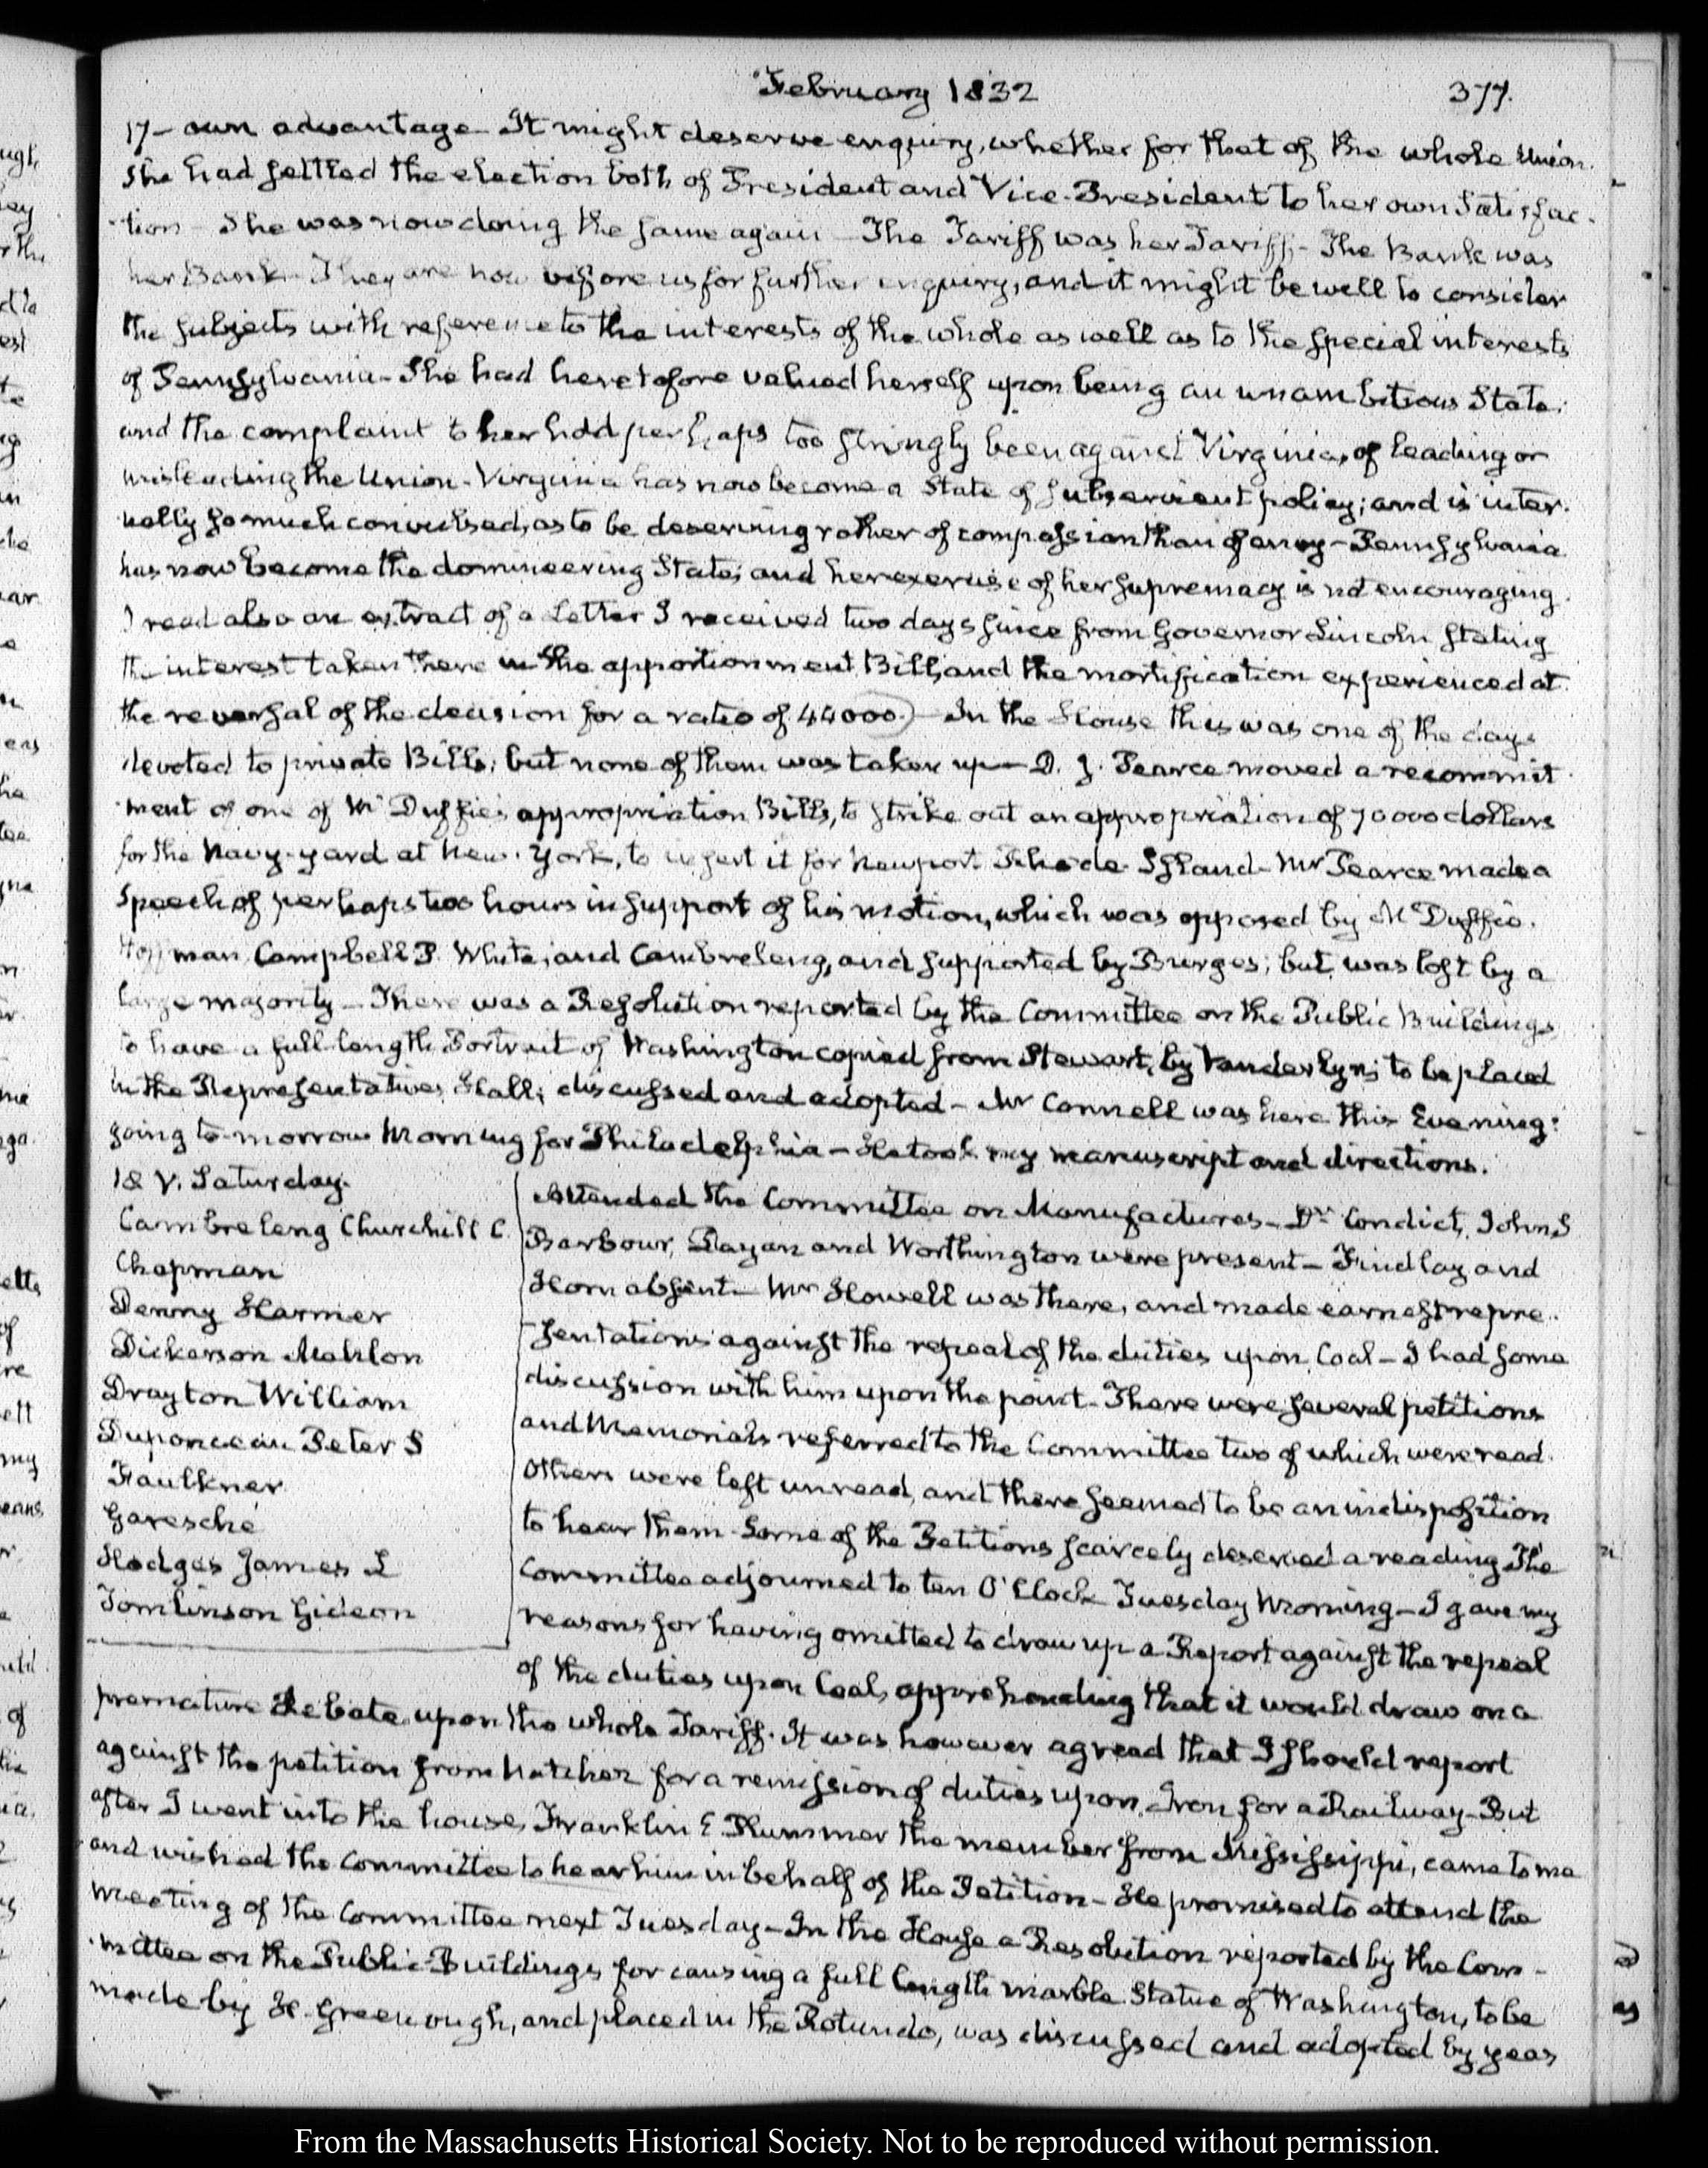 February 1832
377.
17- own advantage It might deserve enquiry, whether for that of the whole Union.
She had settled the election both of President and Vice-President to her own satisfac-
-tion - She was now doing the same again - The Tariff was her Tariff - The Bank was
her Bank - They are now before us for further enquiry, and it might be well to consider
the subjects with reference to the interests of the whole as well as to the special interests
of Pennsylvania - She had heretofore valued herself upon being an unambitious State;
and the complaint perhaps too strongly been against Virginia, of leading or
misleading the Union - Virginia has now become a State of subservient policy; and is inter-
nally so much convulsed, as to be deserving rather of compassion than of envy - Pennsylvania
has now become the domineering State; and her exercise of her supremacy is not encouraging.
I read also an extract of a Letter I received two days since from Governor Lincoln stating
the interest taken there in the apportionment Bill, and the mortification experienced at
the reversal of the decision for a ratio of 44000.) - In the House this was one of the days
devoted to private Bills; but none of them was taken up - D. J. Pearce moved a recommit-
-ment of one of McDuffie's appropriation Bills, to strike out an appropriation of 70000 dollars
for the Navy-yard at New-York, to insert it for Newport Rhode-Island - Mr Pearce made a
speech of perhaps two hours in support of his motion, which was opposed by McDuffie.
Hoffman, Campbell P. White, and Cambreleng, and supported by Burges; but was lost by a
large majority - There was a Resolution reported by the Committee on the Public Buildings,
to have a full length Portrait of Washington copied from Stewart, by Vanderlyn; to be placed
in the Representatives Hall; discussed and adopted - Mr Connell was here this Evening:
going to-morrow Morning for Philadelphia - He took my manuscript and directions.
18 V. Saturday.
Cambreleng Churchill C.
Chapman
Denny Harmer
Dickerson Mahlon
Drayton William
Duponceau Peter S
Faulkner
Garesché
Hodges James L
Tomlinson Gideon
Attended the Committee on Manufactures - Dr Condict, John S
Barbour, Dayan and Worthington were present - Findlay and
Horn absent - Mr Howell was there, and made earnest repre-
-sentations against the repeal of the duties upon Coal - I had some
discussion with him upon the point - There were several petitions
and Memorials referred to the Committee two of which were read.
Others were left unread, and there seemed to be an indisposition
to hear them - Some of the Petitions scarcely deserved a reading The
Committee adjourned to ten O'Clock Tuesday Morning - I gave my
reasons for having omitted to draw up a Report against the repeal
of the duties upon Coal, apprehending that it would draw on a
premature debate upon the whole Tariff. It was however agreed that I should report
against the petition from Natchez for a remission of duties upon Iron for a Railway - But
after I went into the house, Franklin E Plummer the member from Mississippi, came to me
and wished the Committee to hear him in behalf of the Petition - He promised to attend the
meeting of the Committee next Tuesday - In the House a Resolution reported by the Com-
-mittee on the Public Buildings for causing a full length marble Statue of Washington, to be
made by H. Greenough, and placed in the Rotundo, was discussed and adopted by yeas
From the Massachusetts Historical Society. Not to be reproduced without permission.